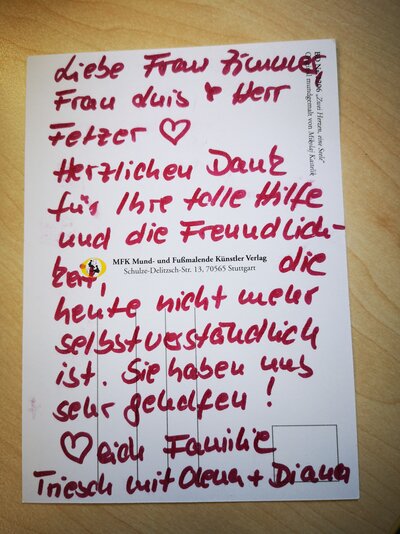 Liebe Frau Zimmer,
Frau Luis & Herr
Fetzer ♡
Herzlichen Dank
für Ihre tolle Hilfe
und die Freundlich-
keit, die
heute nicht mehr
selbstverständlich
ist. Sie haben uns
sehr geholfen!
♡lich Familie
Triesch mit Olena + Diana
MFK Mund- und Fußmalende Künstler Verlag
Schulze-Delitzsch-Str. 13, 70565 Stuttgart
"Zwei Herzen, eine Seele"
mundgemalt von Mikolaj Kastelik